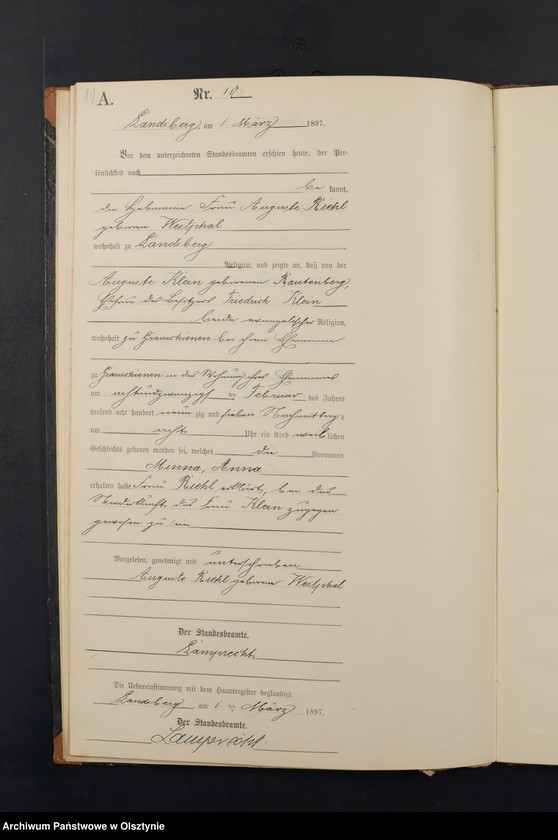 11
A.
Nr. 10
Landsberg, am 1 März 1897.
Vor dem unterzeichneten Standesbeamten erschien heute, der Per-
sönlichkeit nach
be kannt,
die Hebamme Frau Auguste Riehl
geborene Westphal
wohnhaft zu Landsberg
Religion, und zeigte an, daß von der
Auguste Klein geborenen Rautenberg,
Ehefrau des Besitzers Friedrich Klein
beide evangelischer Religion,
wohnhaft zu bei ihrem Ehemanne
zu in der Wohnung ihres Ehemannes
am achtundzwanzigsten Februar des Jahres
tausend acht hundert neun zig und sieben Nachmittags
um acht Uhr ein Kind weiblichen
Geschlechts geboren worden sei, welches die Vornamen
Minna, Anna
erhalten habe Frau Riehl erklärt, bei der
Niederkunft der Frau Klein zugegen
gewesen zu sein
Vorgelesen, genehmigt und unterschrieben
Auguste Riehl geborene Westphal
Der Standesbeamte.
Lamprecht
Die Uebereinstimmung mit dem Hauptregister beglaubigt.
Landsberg am 1 ten März 1897.
Der Standesbeamte.
Lamprecht
Archiwum Państwowe w Olsztynie